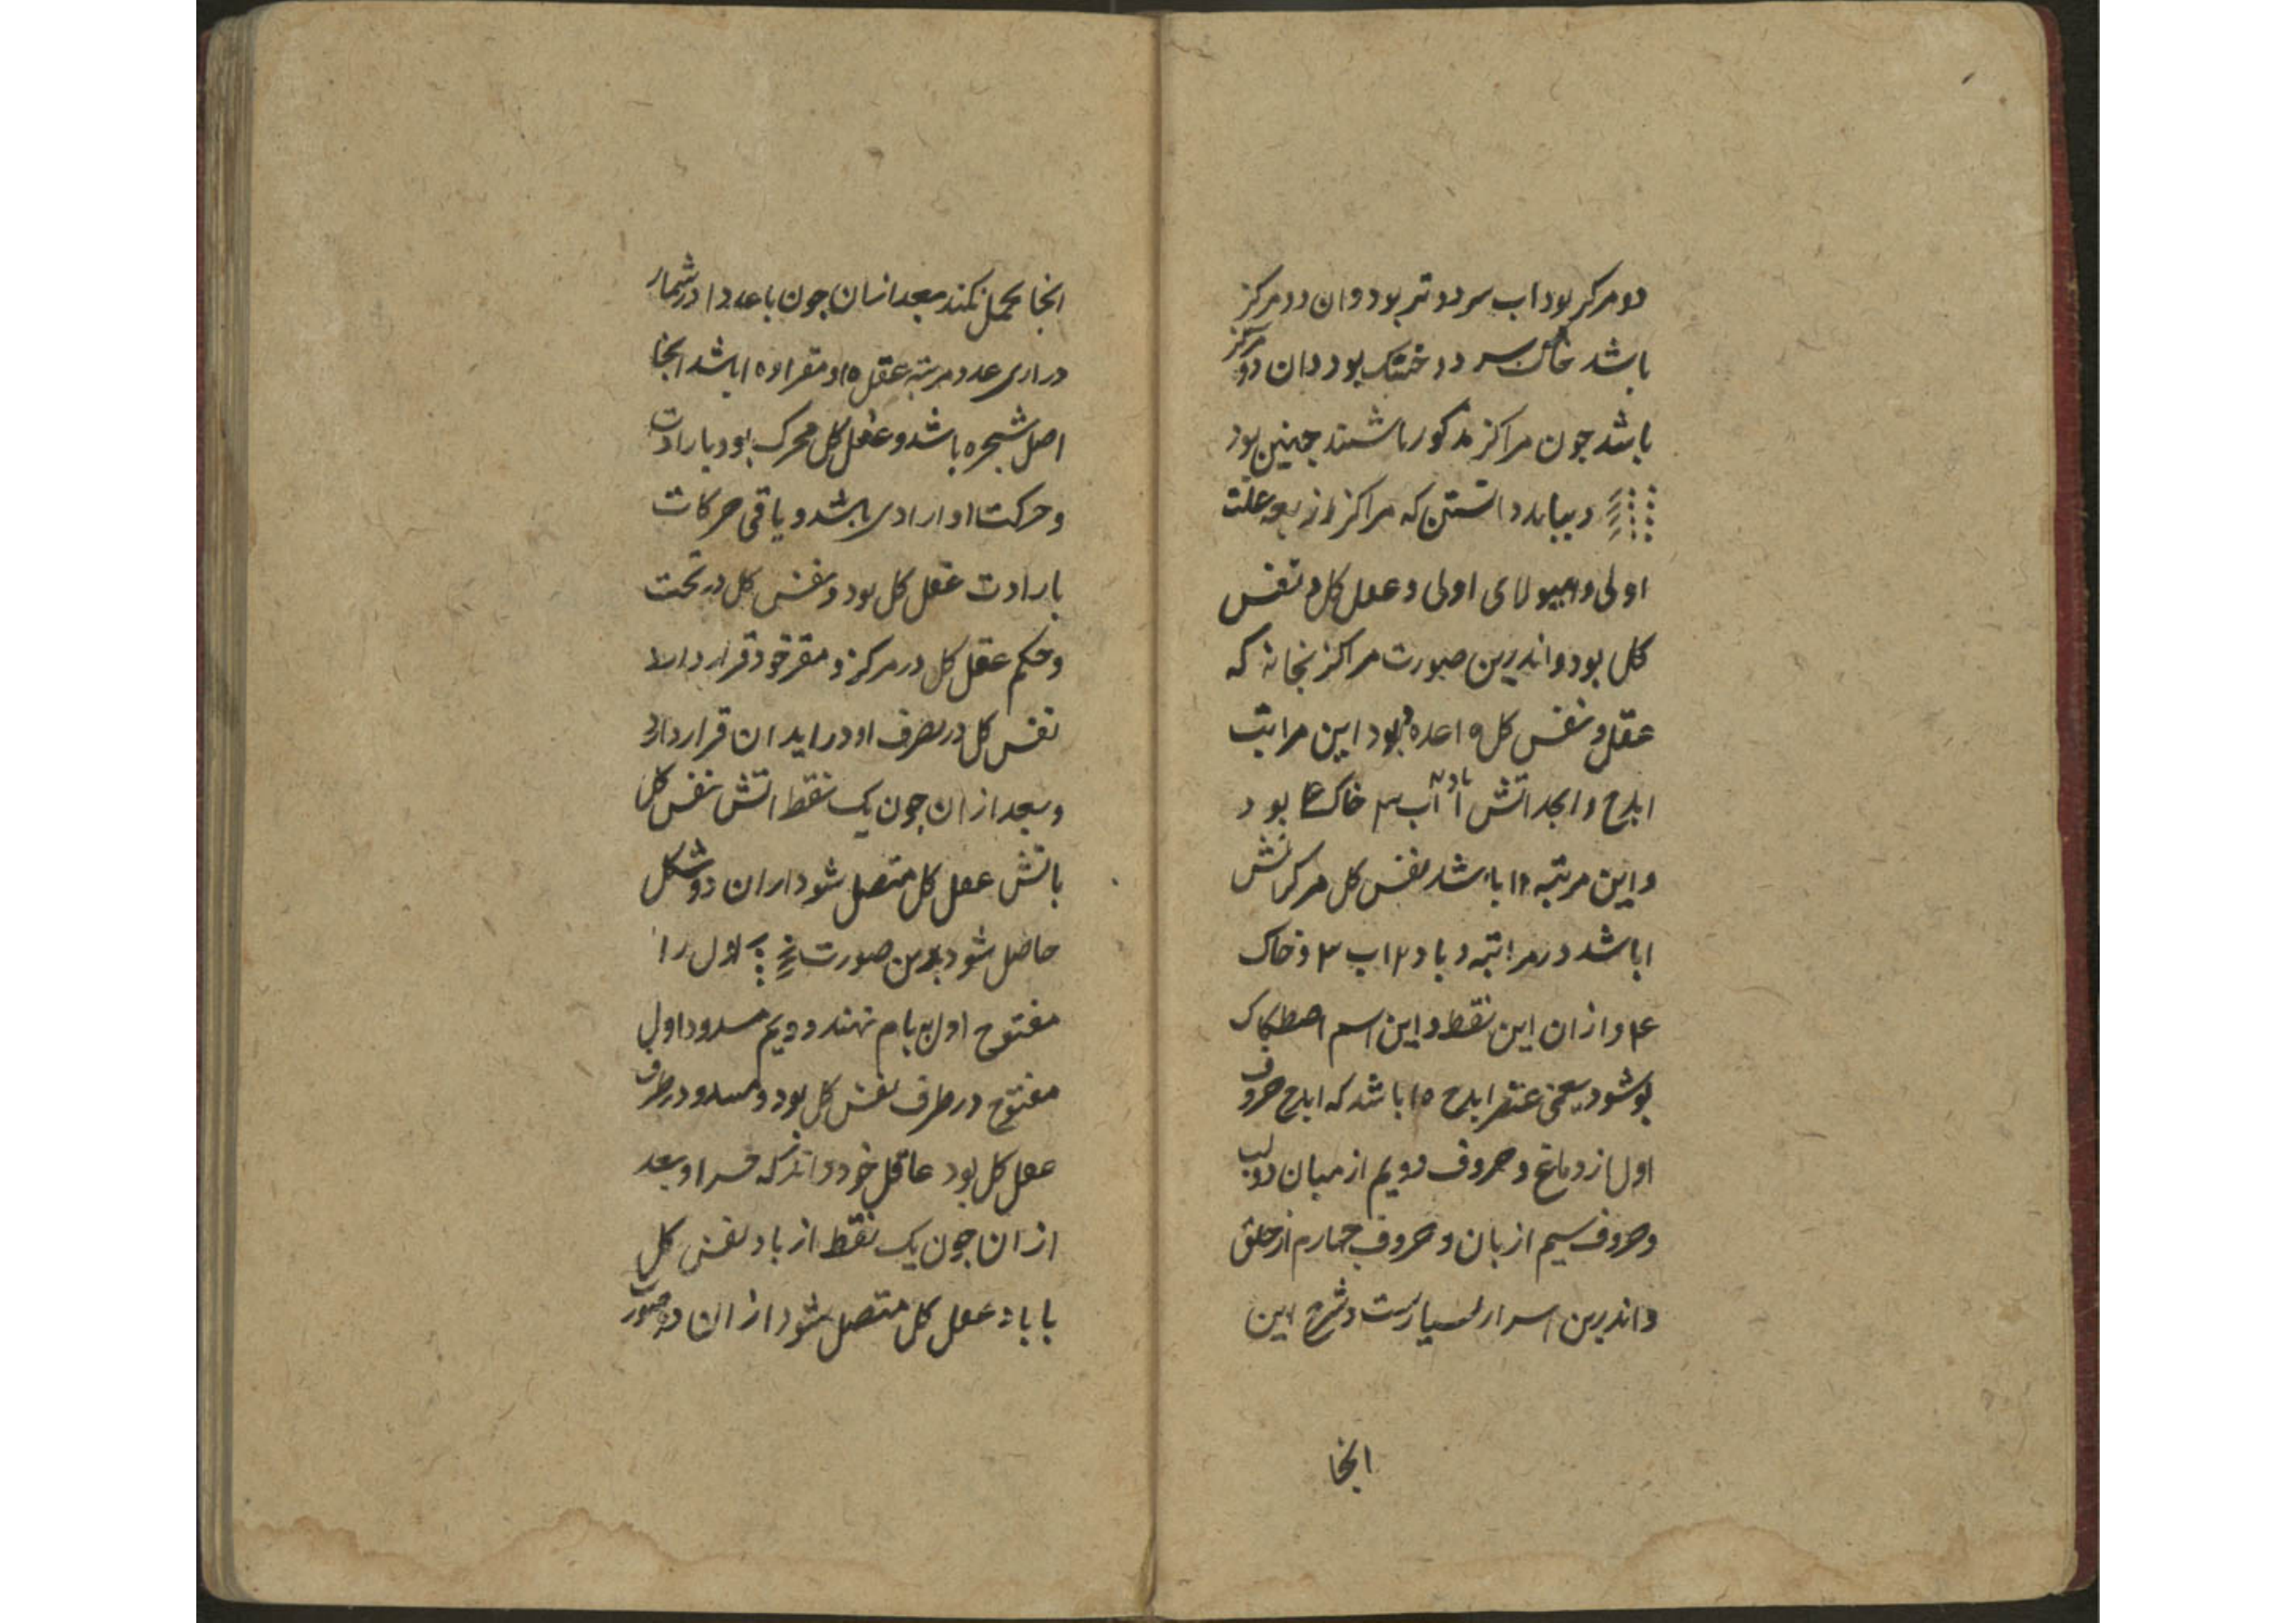 دو مرکز بود اب سرد و تر بود و ان دو مرکز
باشد خاک سرد و خشک بود و ان دو مرکز
باشد چون مراکز مذکور باشند چنین بود
و بباید دانستن که مراکز از علت
اولی و هیولای اولی و عقل کل و نفس
کل بود و اندرین صورت مراکز که
عقل و نفس کل بود این مراتب
ابدح و ابجد اتش ا باد ۲ آب ۳ خاک ۴ بود
و این مرتبه باشد نفس کل مرکز اتش
ا باشد در مراتبه و باد ۲ اب ۳ و خاک
۴ و از ان این نقط و این اسم
شود یعنی عنصر ابدح ۱۵ باشد که ابدح حروف
اول از دماغ و حروف دویم از میان دو لب
و حروف سیم از بان و حروف چهارم از حلق
و اندرین اسرار بسیارست و شرح این
انجا
انجا تحمل نکند بعد انسان چون با عدد ا در شمار
در اری عدد مرتبه عقل ۱۵ و مقر او ۱۵ باشد انجا
اصل شجره باشد و عقل کل محرک بود بارادت
و حرکت او ارادی باشد و باقی حرکات
بارادت عقل کل بود و نفس کل در تحت
و حکم عقل کل در مرکز و مقر خود قرار دارد
نفس کل در تصرف او در اید ان قرار دارد
و بعد از ان چون یک نقط اتش نفس کل
باتش عقل کل متصل شود از ان دو شکل
حاصل شود بدین صورت اول را
مفتوح اول نام نهند و دویم مسدود اول
مفتوح در طرف نفس کل بود و مسدود در طرف
عقل کل بود عاقل خود داند که و بعد
از ان چون یک نقط از باد نفس کل
با باد عقل کل متصل شود از ان دو صورت